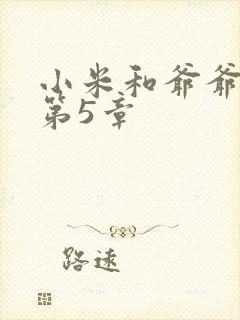 小米和爷爷
第5章
路远